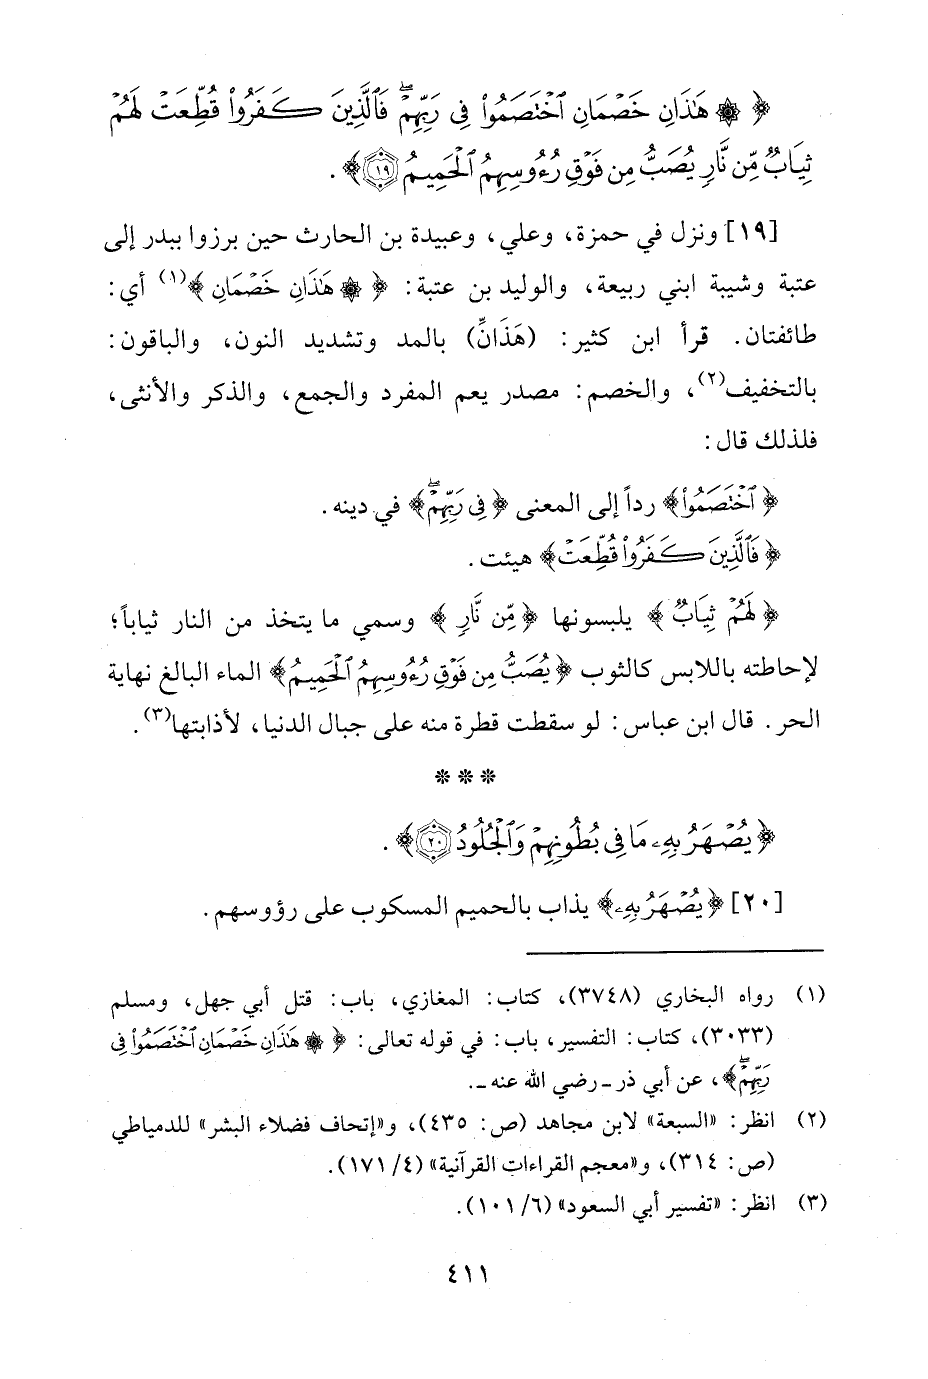 ﴿ ۞ هَٰذَانِ خَصۡمَانِ ٱخۡتَصَمُواْ فِي رَبِّهِمۡۖ فَٱلَّذِينَ كَفَرُواْ قُطِّعَتۡ لَهُمۡ
ثِيَابٞ مِّن نَّارٖ يُصَبُّ مِن فَوۡقِ رُءُوسِهِمُ ٱلۡحَمِيمُ ١٩﴾ .
[١٩] ونزل في حمزة، وعلي، وعبيدة بن الحارث حين برزوا ببدر إلى
عتبة وشيبة ابني ربيعة، والوليد بن عتبة: ﴿ ۞ هَٰذَانِ خَصۡمَانِ ﴾(١) أي:
طائفتان. قرأ ابن كثير: (هَذَانِّ) بالمد وتشديد النون، والباقون:
بالتخفيف(٢)، والخصم: مصدر يعم المفرد والجمع، والذكر والأنثى،
فلذلك قال:
﴿ ٱخۡتَصَمُواْ﴾ رداً إلى المعنى ﴿ فِي رَبِّهِمۡۖ﴾ في دينه.
﴿ فَٱلَّذِينَ كَفَرُواْ قُطِّعَتۡ﴾ هيئت.
﴿ لَهُمۡ ثِيَابٞ ﴾ يلبسونها ﴿ مِّن نَّارٖ ﴾ وسمي ما يتخذ من النار ثياباً؛
لإحاطته باللابس كالثوب ﴿ يُصَبُّ مِن فَوۡقِ رُءُوسِهِمُ ٱلۡحَمِيمُ﴾ الماء البالغ نهاية
الحر. قال ابن عباس: لو سقطت قطرة منه على جبال الدنيا، لأذابتها(٣).
* * *
﴿ يُصۡهَرُ بِهِۦ مَا فِي بُطُونِهِمۡ وَٱلۡجُلُودُ ٢٠﴾ .
[٢٠] ﴿ يُصۡهَرُ بِهِۦ﴾ يذاب بالحميم المسكوب على رؤوسهم.
(١) رواه البخاري (٣٧٤٨)، كتاب: المغازي، باب: قتل أبي جهل، ومسلم
(٣٠٣٣)، كتاب: التفسير، باب: في قوله تعالى: ﴿ ۞ هَٰذَانِ خَصۡمَانِ ٱخۡتَصَمُواْ فِي
رَبِّهِمۡۖ﴾، عن أبي ذر ـ رضي الله عنه ـ.
(٢) انظر: «السبعة» لابن مجاهد (ص: ٤٣٥)، و«إتحاف فضلاء البشر» للدمياطي
(ص: ٣١٤)، و«معجم القراءات القرآنية» (٤/ ١٧١).
(٣) انظر: «تفسير أبي السعود» (٦/ ١٠١).
٤١١